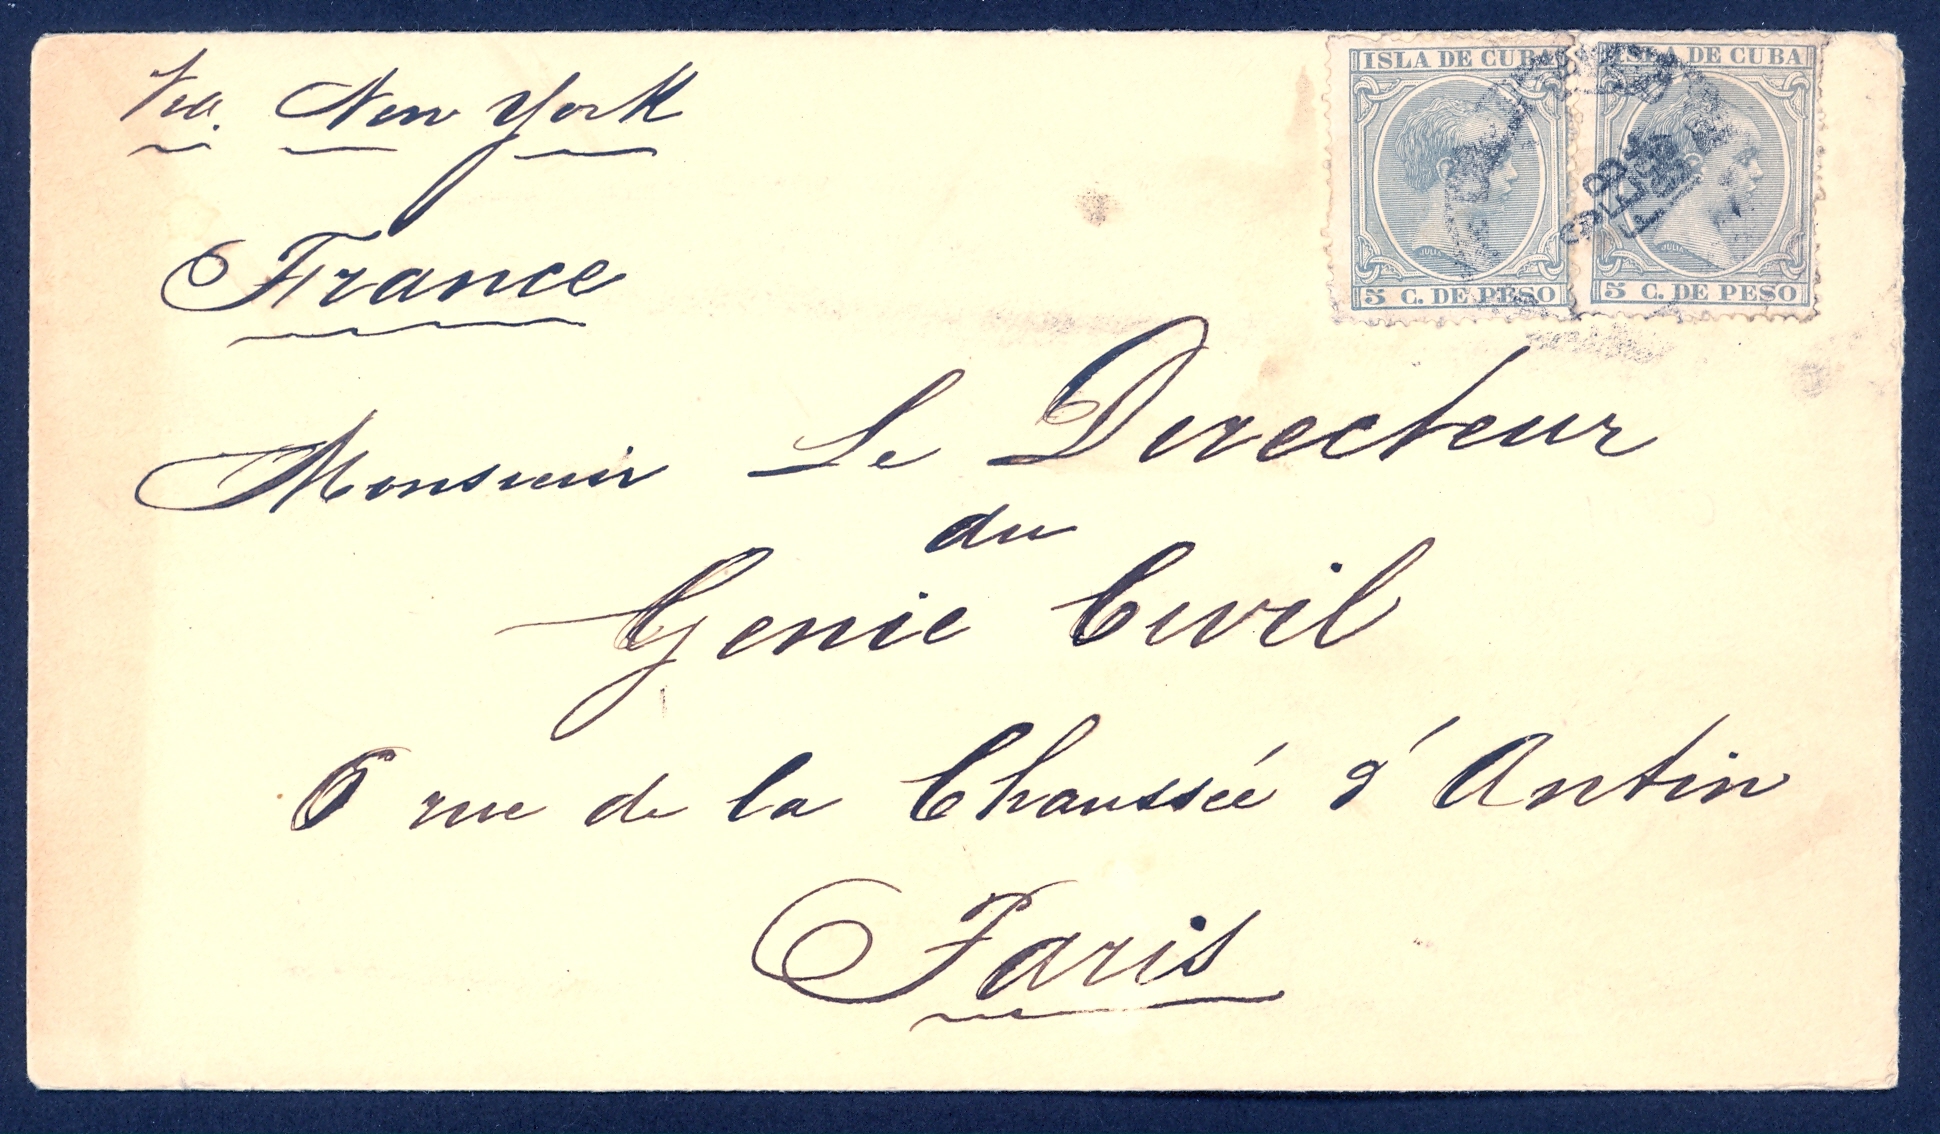 Via. New York
France
ISLA DE CUBA
ISLA DE CUBA
FEB
JULIA
JULIA
5 C. DE PESO
5 C. DE PESO
Monsieur Le Directeur
du
Genie Civil
6 rue de la Chaussée d'Antin
Paris